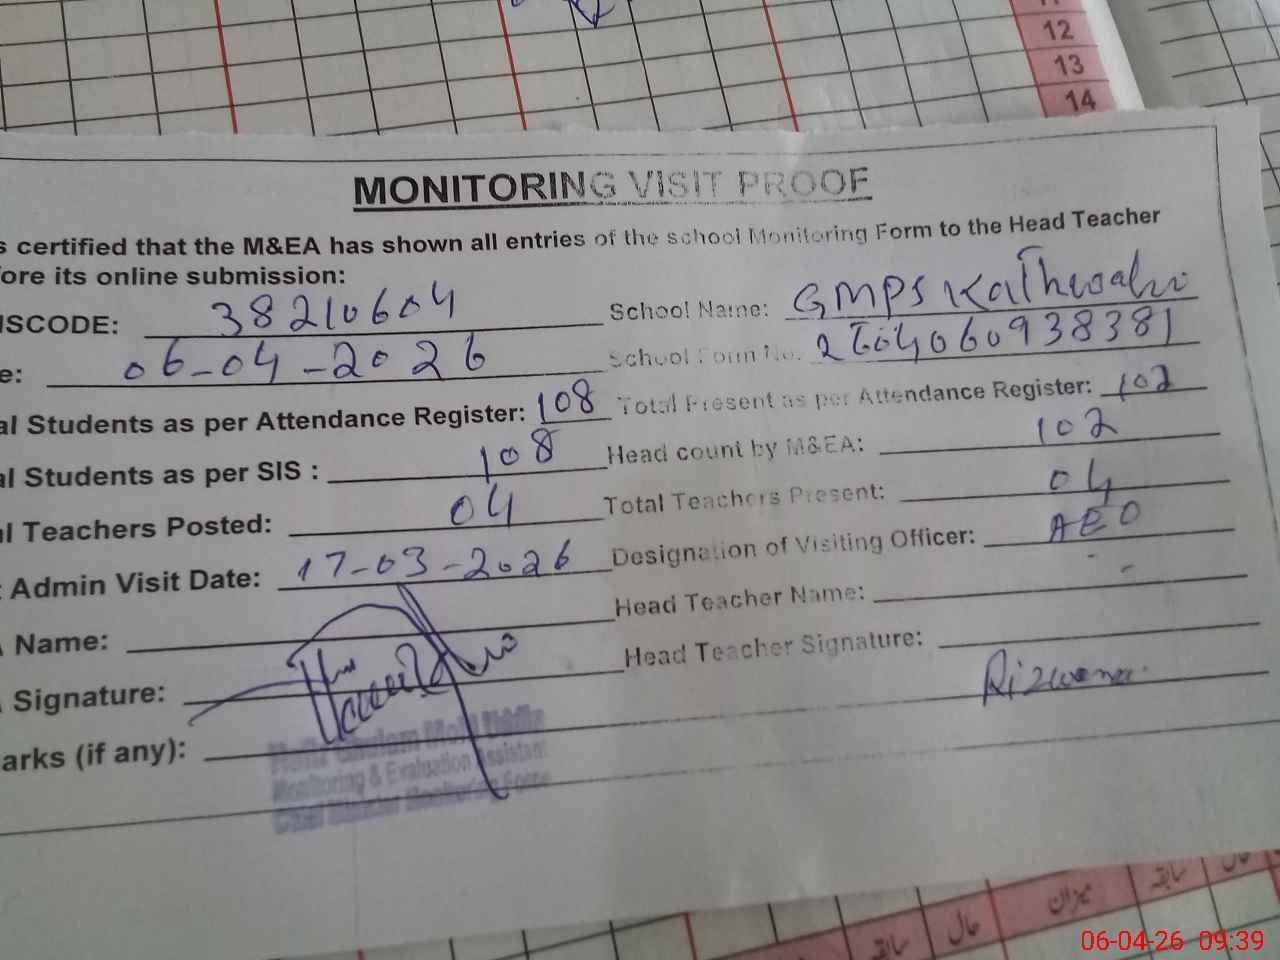 12
13
14
MONITORING VISIT PROOF
s certified that the M&EA has shown all entries of the school Monitoring Form to the Head Teacher
fore its online submission:
ISCODE: 38210604 School Name: GMPS Kathwala
e: 06-04-2026 School Form No. 2604060938381
al Students as per Attendance Register: 108 Total Present as per Attendance Register: 102
al Students as per SIS : 108 Head count by M&EA: 102
al Teachers Posted: 04 Total Teachers Present: 04
t Admin Visit Date: 17-03-2026 Designation of Visiting Officer: AEO
Name: Head Teacher Name:
Signature: Head Teacher Signature:
Rizwana
arks (if any):
Ghulam
Monitoring & Evaluation Assistant
Chief Minister Monitoring Force
حال سابقہ میزان حال سابقہ
06-04-26 09:39